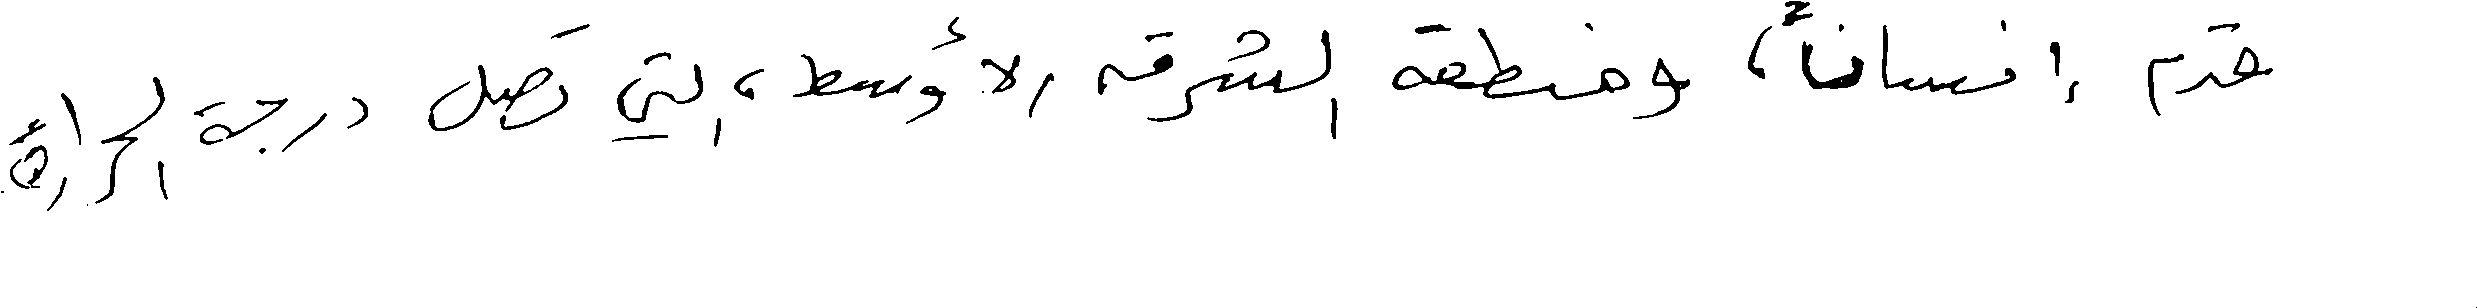 قدم إنساناً، ومنطقة الشرق الأوسط، التي تصل درجة الحرارة